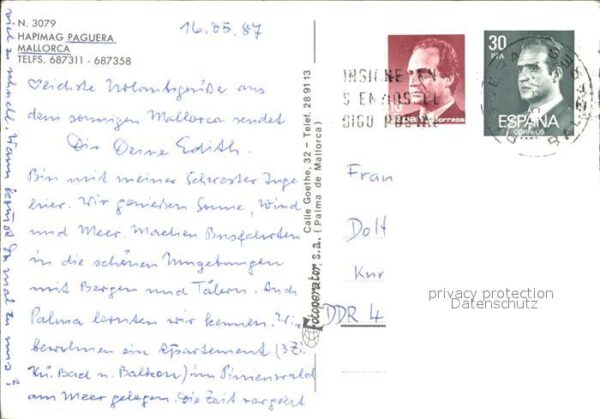 N. 3079
HAPIMAG PAGUERA
MALLORCA
TELFS. 687311 - 687358
16.05.87
Herzlichste Urlaubsgrüße aus
dem sonnigen Mallorca sendet
Dir Deine Edith.
Bin mit meiner Schwester Inge
hier. Wir genießen Sonne, Wind
und Meer. Machen Busfahrten
in die schönen Umgebungen
mit Bergen und Tälern. Auch
Palma lernten wir kennen. Wir
bewohnen ein Apartement (3Zi.
Kü. Bad u. Balkon) im Pinienwald
am Meer gelegen. Die Zeit vergeht
viel zu schnell. Wann kommst Du mal zu uns?
Fotoperator, s.a. Calle Goethe, 32 - Telef. 28 91 13
(Palma de Mallorca)
30
PTA
ESPAÑA
CORREOS
Correos
INSIGNE EN
S EN
DIGO POSTAL
Frau
Dolt
Kur
DDR 4
privacy protection
Datenschutz